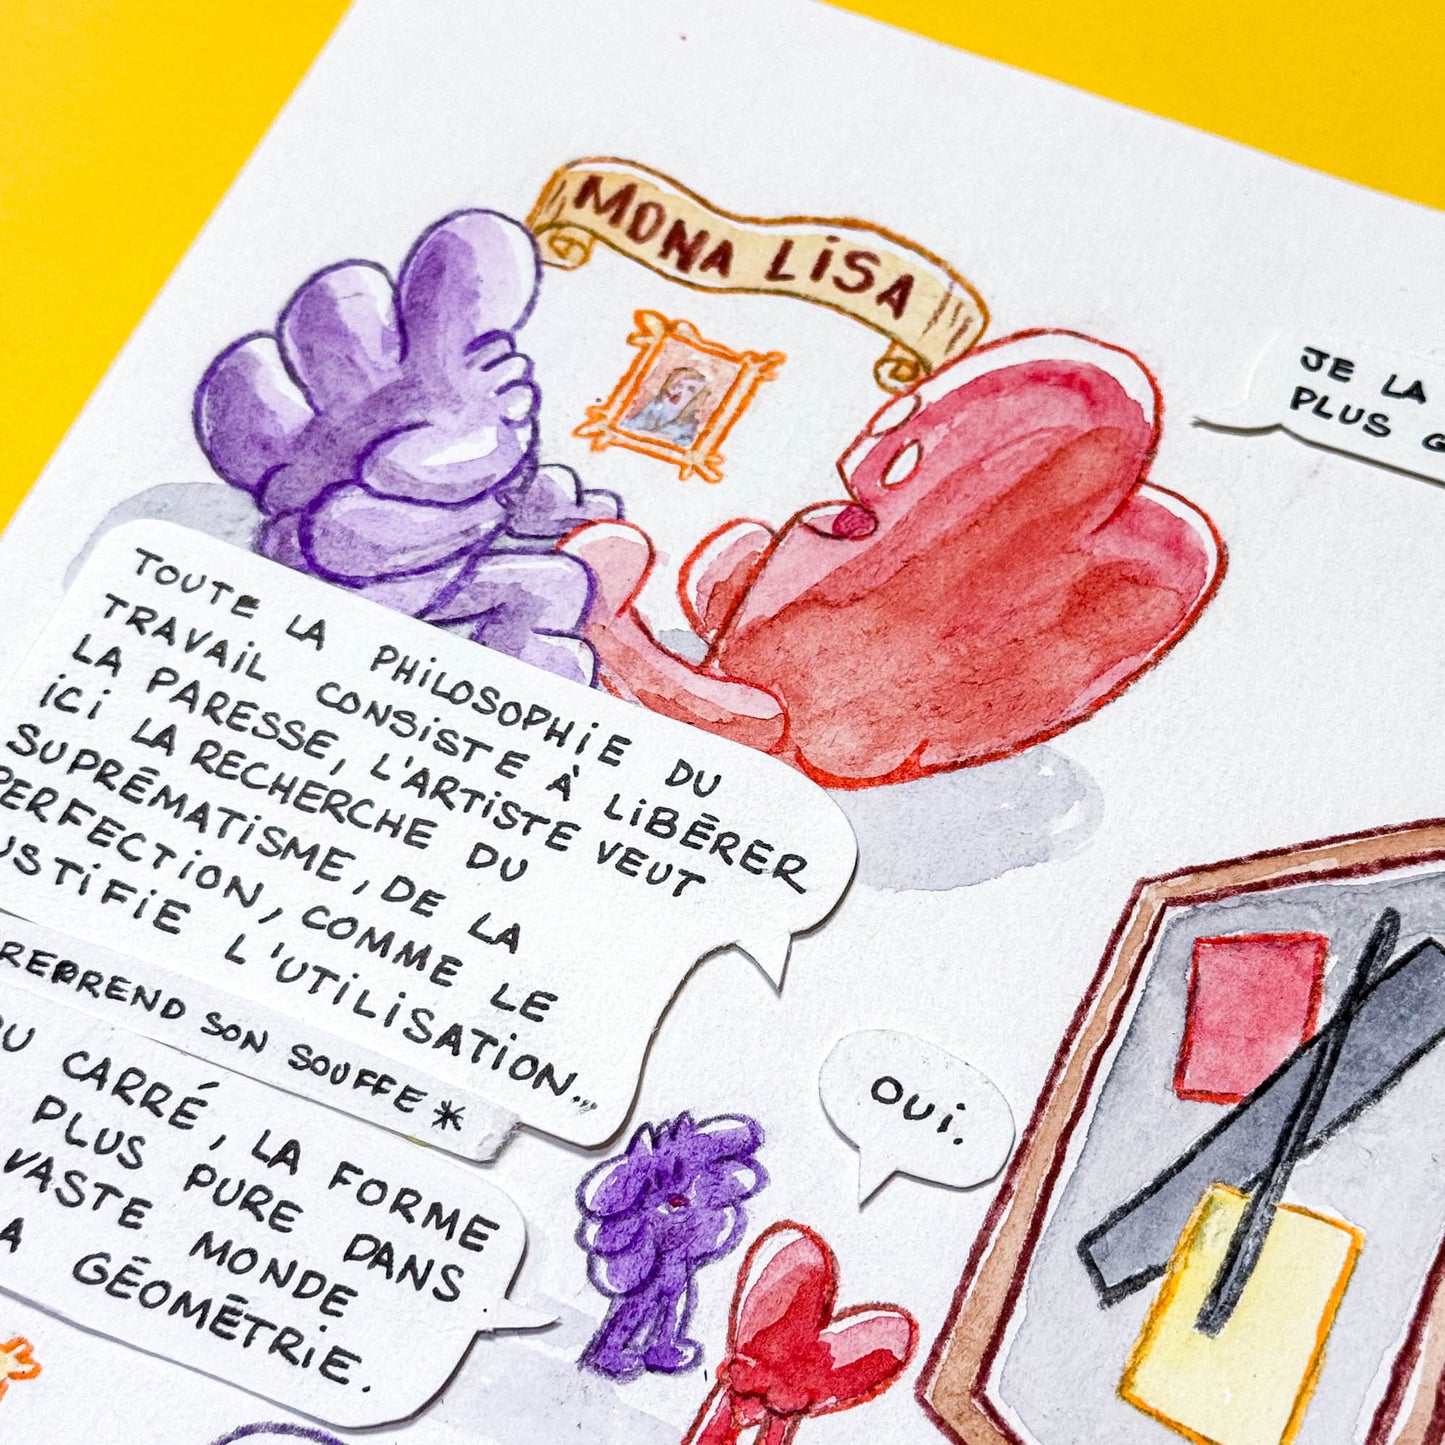 MONA LiSA
JE LA
PLUS
TOUTE LA PHiLOSOPHiE DU
TRAVAiL CONSiSTE À LiBÉRER
LA PARESSE, L'ARTiSTE VEUT
iCi LA RECHERCHE DU
SUPRÉMATiSME, DE LA
PERFECTiON, COMME LE
JUSTiFiE L'UTiLiSATiON...
REPREND SON SOUFFE *
DU CARRÉ, LA FORME
PLUS PURE DANS
VASTE MONDE
LA GÉOMÉTRiE.
OUi.